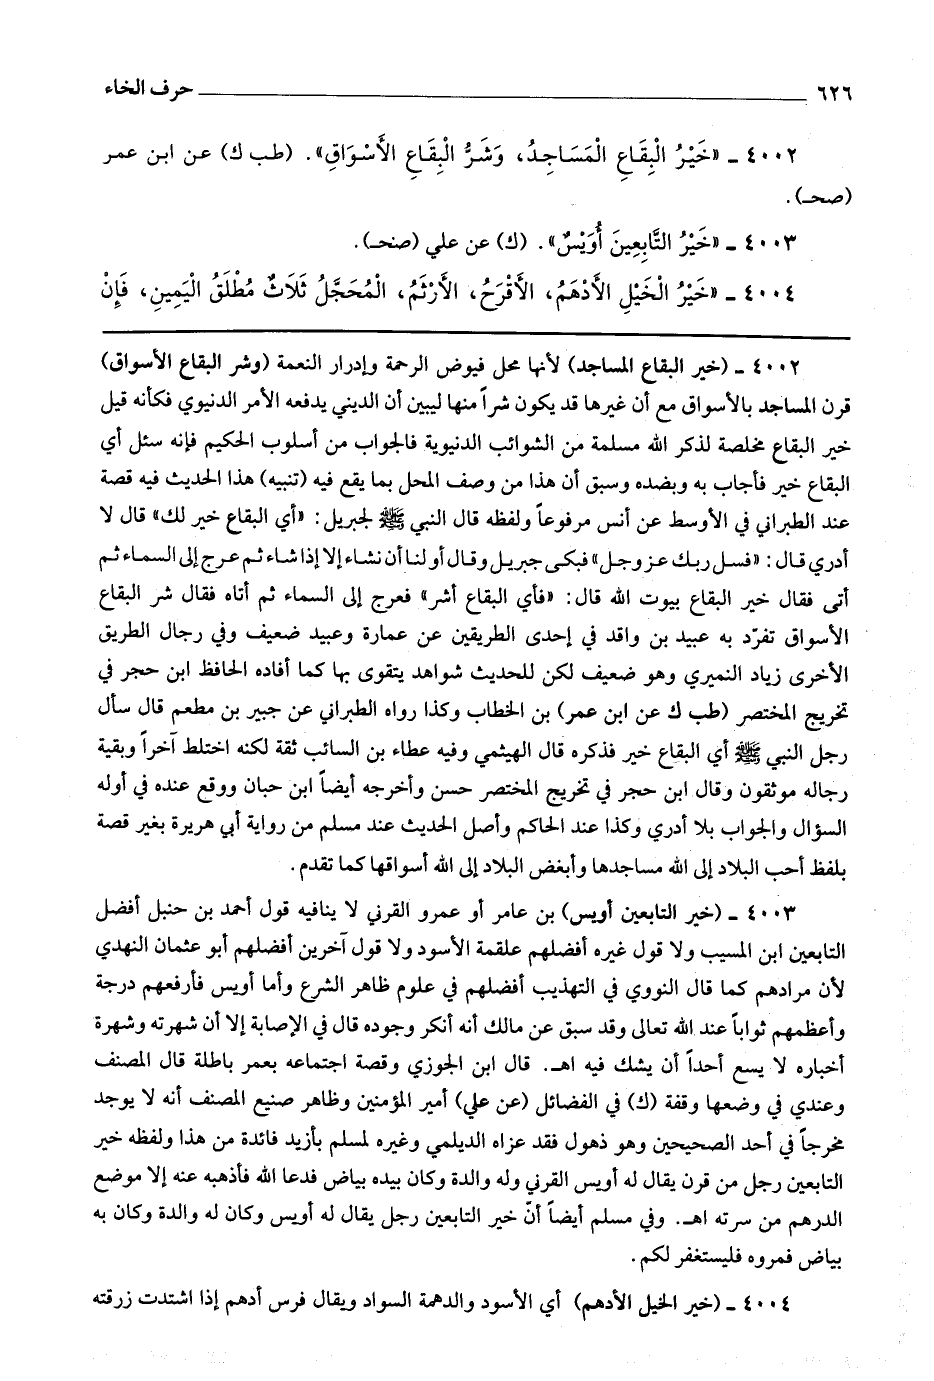 ٦٢٦ حرف الخاء
٤٠٠٢ ـ «خَيْرُ الْبِقَاعِ الْمَسَاجِدُ، وَشَرُّ الْبِقَاعِ الأَسْوَاقِ». (طب ك) عن ابن عمر
(صحـ).
٤٠٠٣ ـ «خَيْرُ التَّابِعِينَ أُوَيْسٌ». (ك) عن علي (صنحـ).
٤٠٠٤ ـ «خَيْرُ الْخَيْلِ الأَدْهَمُ، الأَقْرَحُ، الأَرْثَمُ، الْمُحَجَّلُ ثَلَاثٌ مُطْلَقُ الْيَمِينِ، فَإِنْ
٤٠٠٢ ـ (خير البقاع المساجد) لأنها محل فيوض الرحمة وإدرار النعمة (وشر البقاع الأسواق)
قرن المساجد بالأسواق مع أن غيرها قد يكون شراً منها ليبين أن الديني يدفعه الأمر الدنيوي فكأنه قيل
خير البقاع مخلصة لذكر الله مسلمة من الشوائب الدنيوية فالجواب من أسلوب الحكيم فإنه سئل أي
البقاع خير فأجاب به وبضده وسبق أن هذا من وصف المحل بما يقع فيه (تنبيه) هذا الحديث فيه قصة
عند الطبراني في الأوسط عن أنس مرفوعاً ولفظه قال النبي ﷺ لجبريل: «أي البقاع خير لك» قال لا
أدري قال: «فسل ربك عز وجل» فبكى جبريل وقال أو لنا أن نشاء إلا إذا شاء ثم عرج إلى السماء ثم
أتى فقال خير البقاع بيوت الله قال: «فأي البقاع أشر» فعرج إلى السماء ثم أتاه فقال شر البقاع
الأسواق تفرّد به عبيد بن واقد في إحدى الطريقين عن عمارة وعبيد ضعيف وفي رجال الطريق
الأخرى زياد النميري وهو ضعيف لكن للحديث شواهد يتقوى بها كما أفاده الحافظ ابن حجر في
تخريج المختصر (طب ك عن ابن عمر) بن الخطاب وكذا رواه الطبراني عن جبير بن مطعم قال سأل
رجل النبي ﷺ أي البقاع خير فذكره قال الهيثمي وفيه عطاء بن السائب ثقة لكنه اختلط آخراً وبقية
رجاله موثقون وقال ابن حجر في تخريج المختصر حسن وأخرجه أيضاً ابن حبان ووقع عنده في أوله
السؤال والجواب بلا أدري وكذا عند الحاكم وأصل الحديث عند مسلم من رواية أبي هريرة بغير قصة
بلفظ أحب البلاد إلى الله مساجدها وأبغض البلاد إلى الله أسواقها كما تقدم.
٤٠٠٣ ـ (خير التابعين أويس) بن عامر أو عمرو القرني لا ينافيه قول أحمد بن حنبل أفضل
التابعين ابن المسيب ولا قول غيره أفضلهم علقمة الأسود ولا قول آخرين أفضلهم أبو عثمان النهدي
لأن مرادهم كما قال النووي في التهذيب أفضلهم في علوم ظاهر الشرع وأما أويس فأرفعهم درجة
وأعظمهم ثواباً عند الله تعالى وقد سبق عن مالك أنه أنكر وجوده قال في الإصابة إلا أن شهرته وشهرة
أخباره لا يسع أحداً أن يشك فيه اهـ. قال ابن الجوزي وقصة اجتماعه بعمر باطلة قال المصنف
وعندي في وضعها وقفة (ك) في الفضائل (عن علي) أمير المؤمنين وظاهر صنيع المصنف أنه لا يوجد
مخرجاً في أحد الصحيحين وهو ذهول فقد عزاه الديلمي وغيره لمسلم بأزيد فائدة من هذا ولفظه خير
التابعين رجل من قرن يقال له أويس القرني وله والدة وكان بيده بياض فدعا الله فأذهبه عنه إلا موضع
الدرهم من سرته اهـ. وفي مسلم أيضاً أنّ خير التابعين رجل يقال له أويس وكان له والدة وكان به
بياض فمروه فليستغفر لكم.
٤٠٠٤ ـ (خير الخيل الأدهم) أي الأسود والدهمة السواد ويقال فرس أدهم إذا اشتدت زرقته